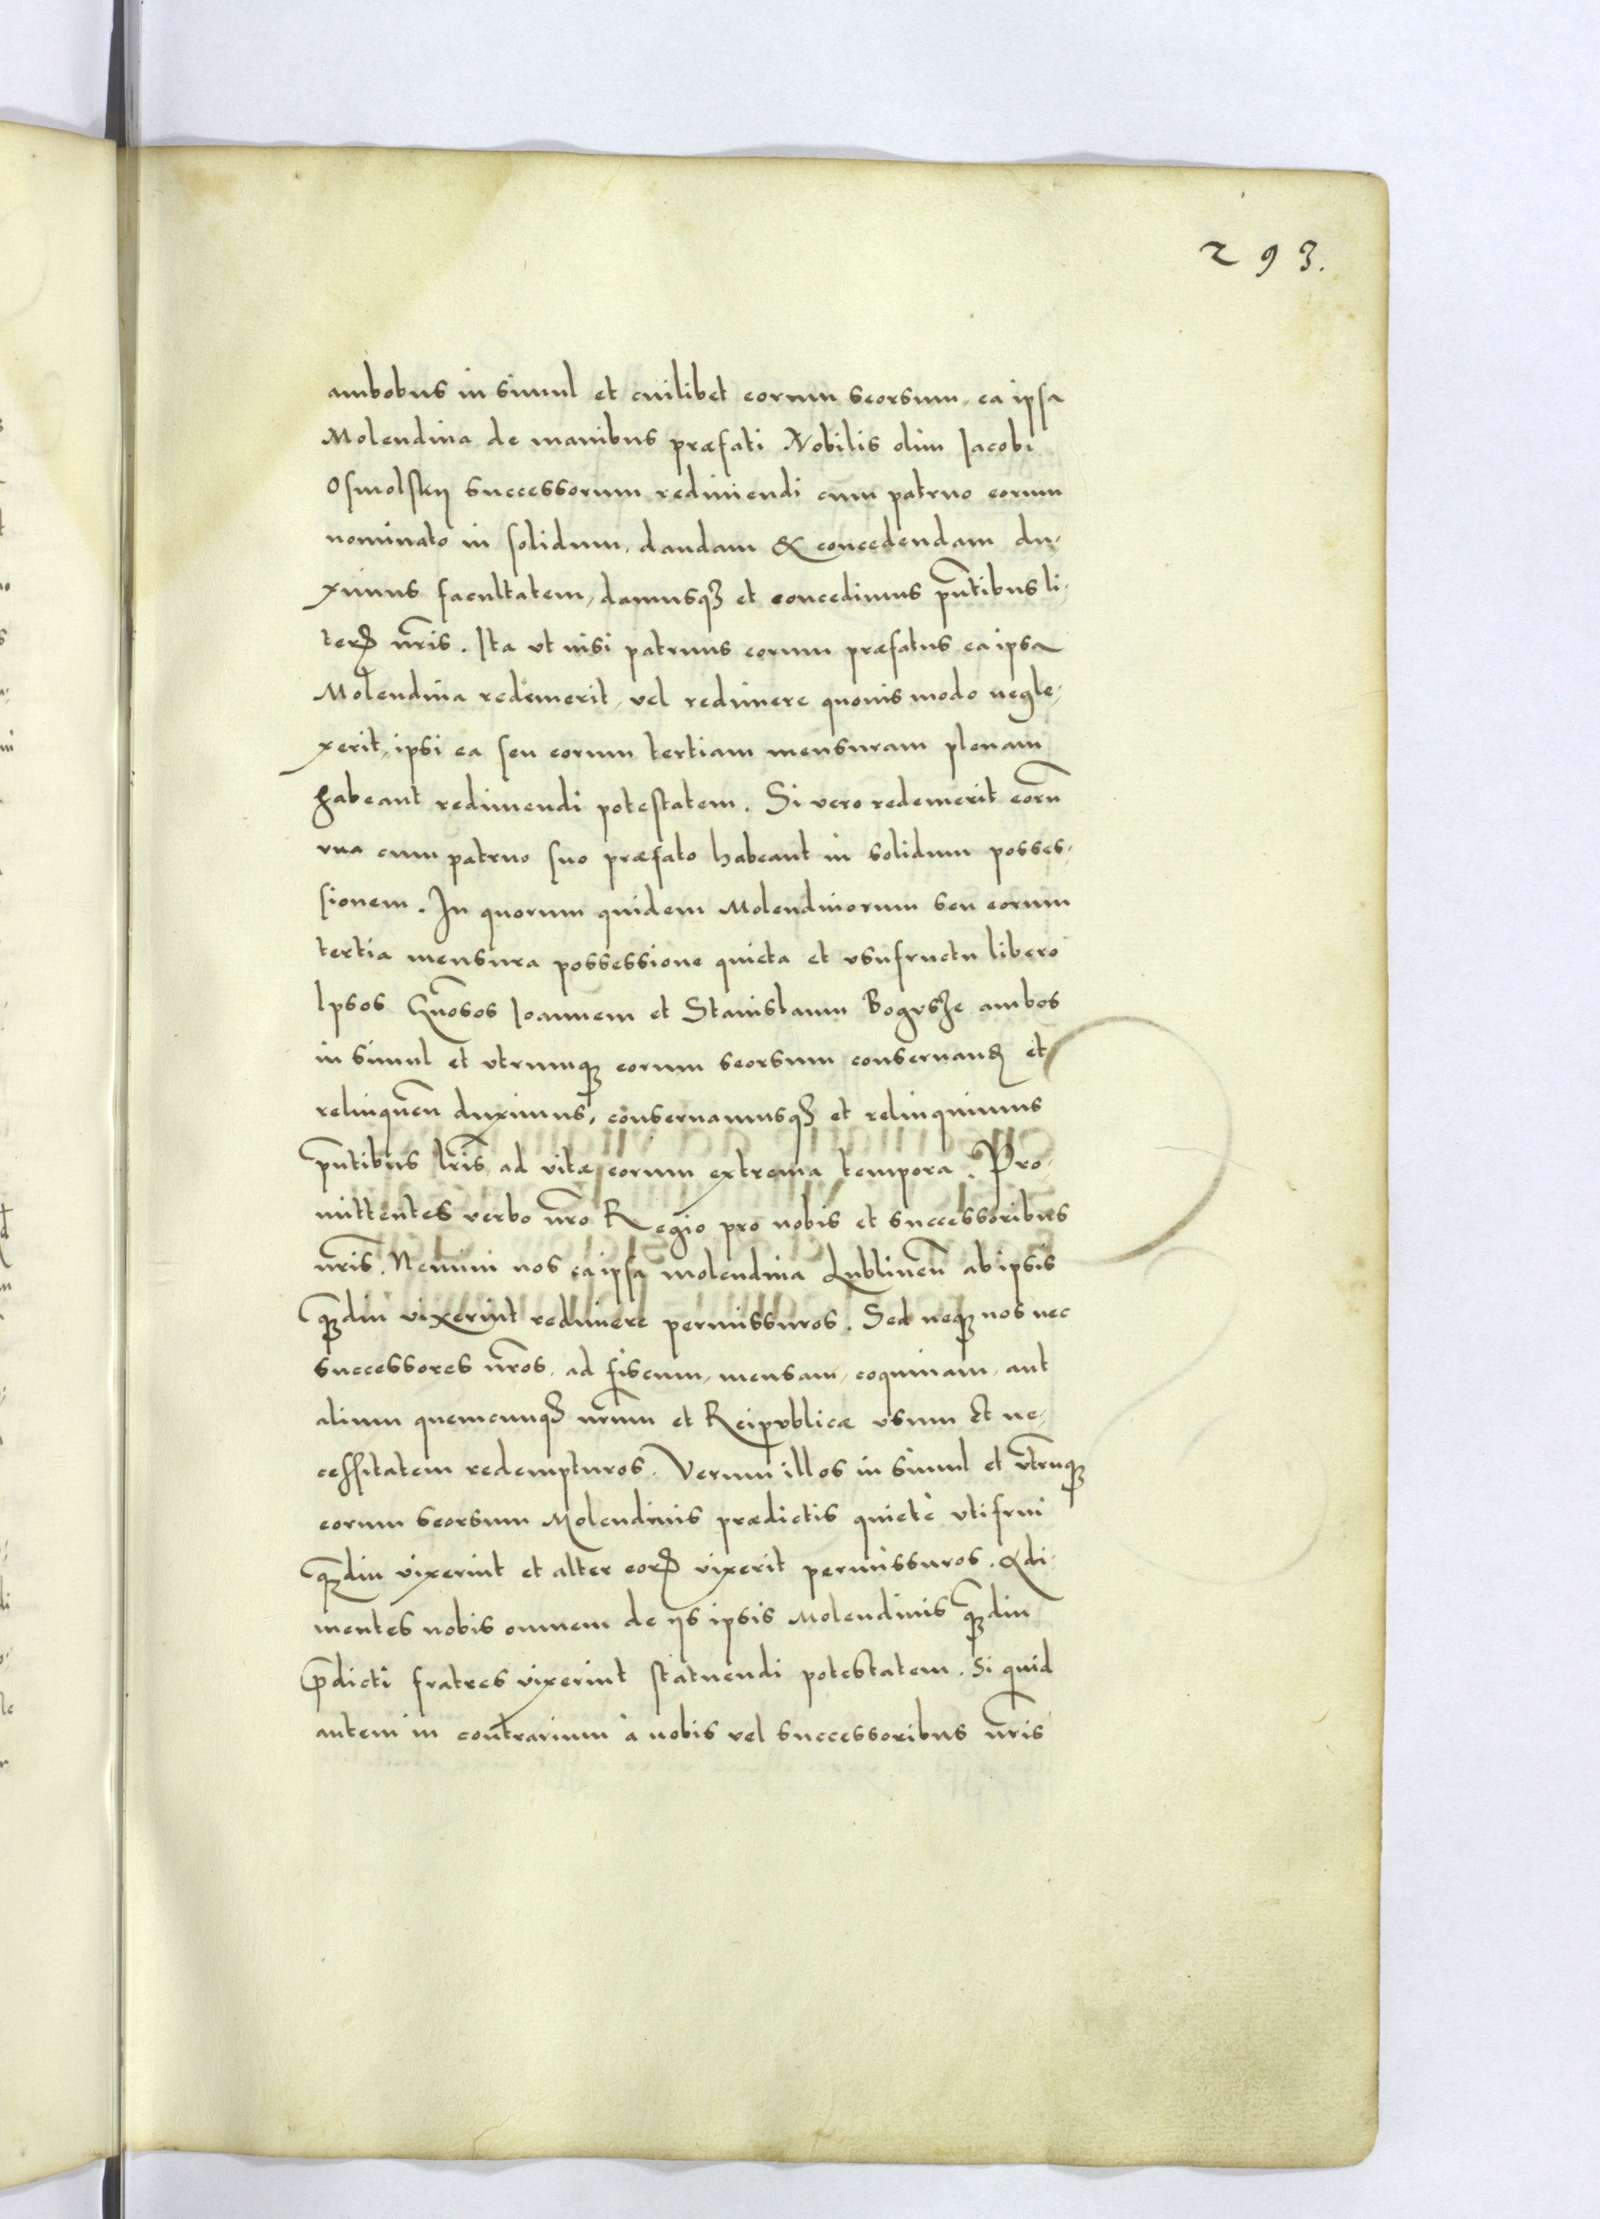 293.
ambobus in simul et cuilibet eorum seorsum, ea ipsa
Molendina de manibus præfati Nobilis olim Jacobi
Osmolskÿ successorum redimendi cum patruo eorum
nominato in solidum, dandam & concedendam du-
ximus facultatem, damusqꝫ et concedimus pñtibus li-
terꝭ nr̃is. Ita vt nisi patruus eorum præfatus ea ipsa
Molendina redemerit, vel redimere quouis modo negle-
xerit, ipsi ea seu eorum tertiam mensuram plenam
habeant redimendi potestatem. Si vero redemerit eorũ
vna cum patruo suo præfato habeant in solidum posses-
sionem. In quorum quidem Molendinorum seu eorum
tertia mensura possessione quieta et vsufructu libero
Ipsos Gñosos Joannem et Stanislaum Bogusze ambos
in simul et vtrumqꝫ eorum seorsum conseruanđ et
relinqueñ duximus, conseruamusqꝫ et relinquimus
pñtibus lr̃is ad vitæ eorum extrema tempora. Pro-
mittentes verbo nr̃o Regio pro nobis et successoribus
nr̃is. Nemini nos ea ipsa molendina Lublineñ ab ipsis
qꝫdiu vixerint redimere permissuros. Sed neqꝫ nos nec
successores nr̃os, ad fiscum, mensam, coquinam, aut
alium quemcunqꝫ nr̃um et Reipublicæ vsum et ne-
cessitatem redempturos. Verum illos in simul et vtrũqꝫ
eorum seorsum Molendinis prædictis quietè vtifrui
qꝫdiu vixerint et alter eorꝭ vixerit permissuros. Adi-
mentes nobis omnem de ÿs ipsis Molendinis qꝫdiu
p̃dicti fratres vixerint statuendi potestatem. Si quid
autem in contrarium à nobis vel successoribus nr̃is